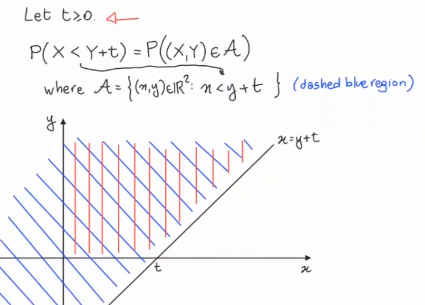 Let t≥0.
P(X < Y+t) = P((X,Y) ∈ A)
where A = {(x,y)∈ℝ²: x<y+t} (dashed blue region)
y
x=y+t
t
x